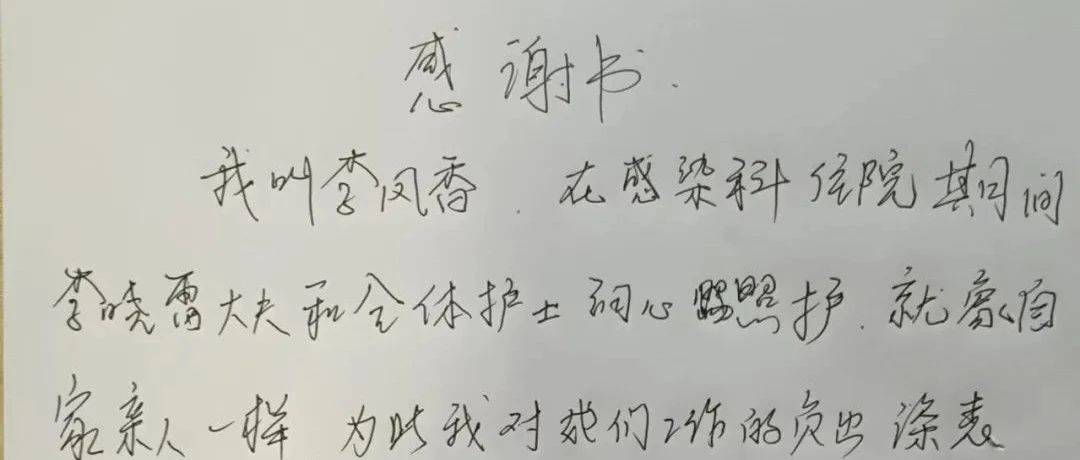 感谢书.
我叫李凤香.在感染科住院期间
李晓雷大夫和全体护士细心照护.就象自
家亲人一样 为此我对她们工作的负出深表